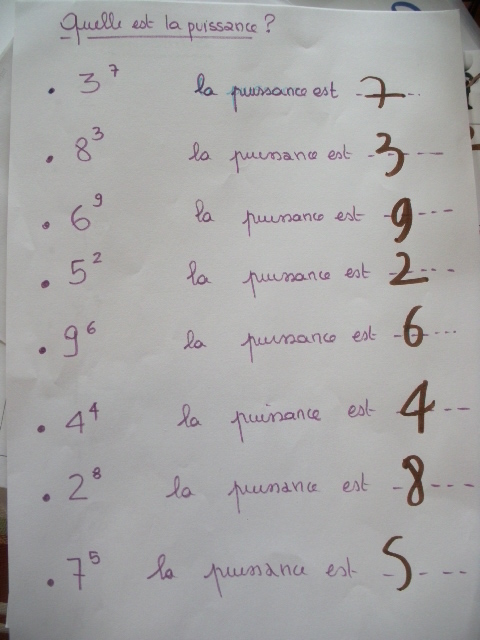 Quelle est la puissance ?
• 3⁷ la puissance est 7
• 8³ la puissance est 3
• 6⁹ la puissance est 9
• 5² la puissance est 2
• 9⁶ la puissance est 6
• 4⁴ la puissance est 4
• 2⁸ la puissance est 8
• 7⁵ la puissance est 5